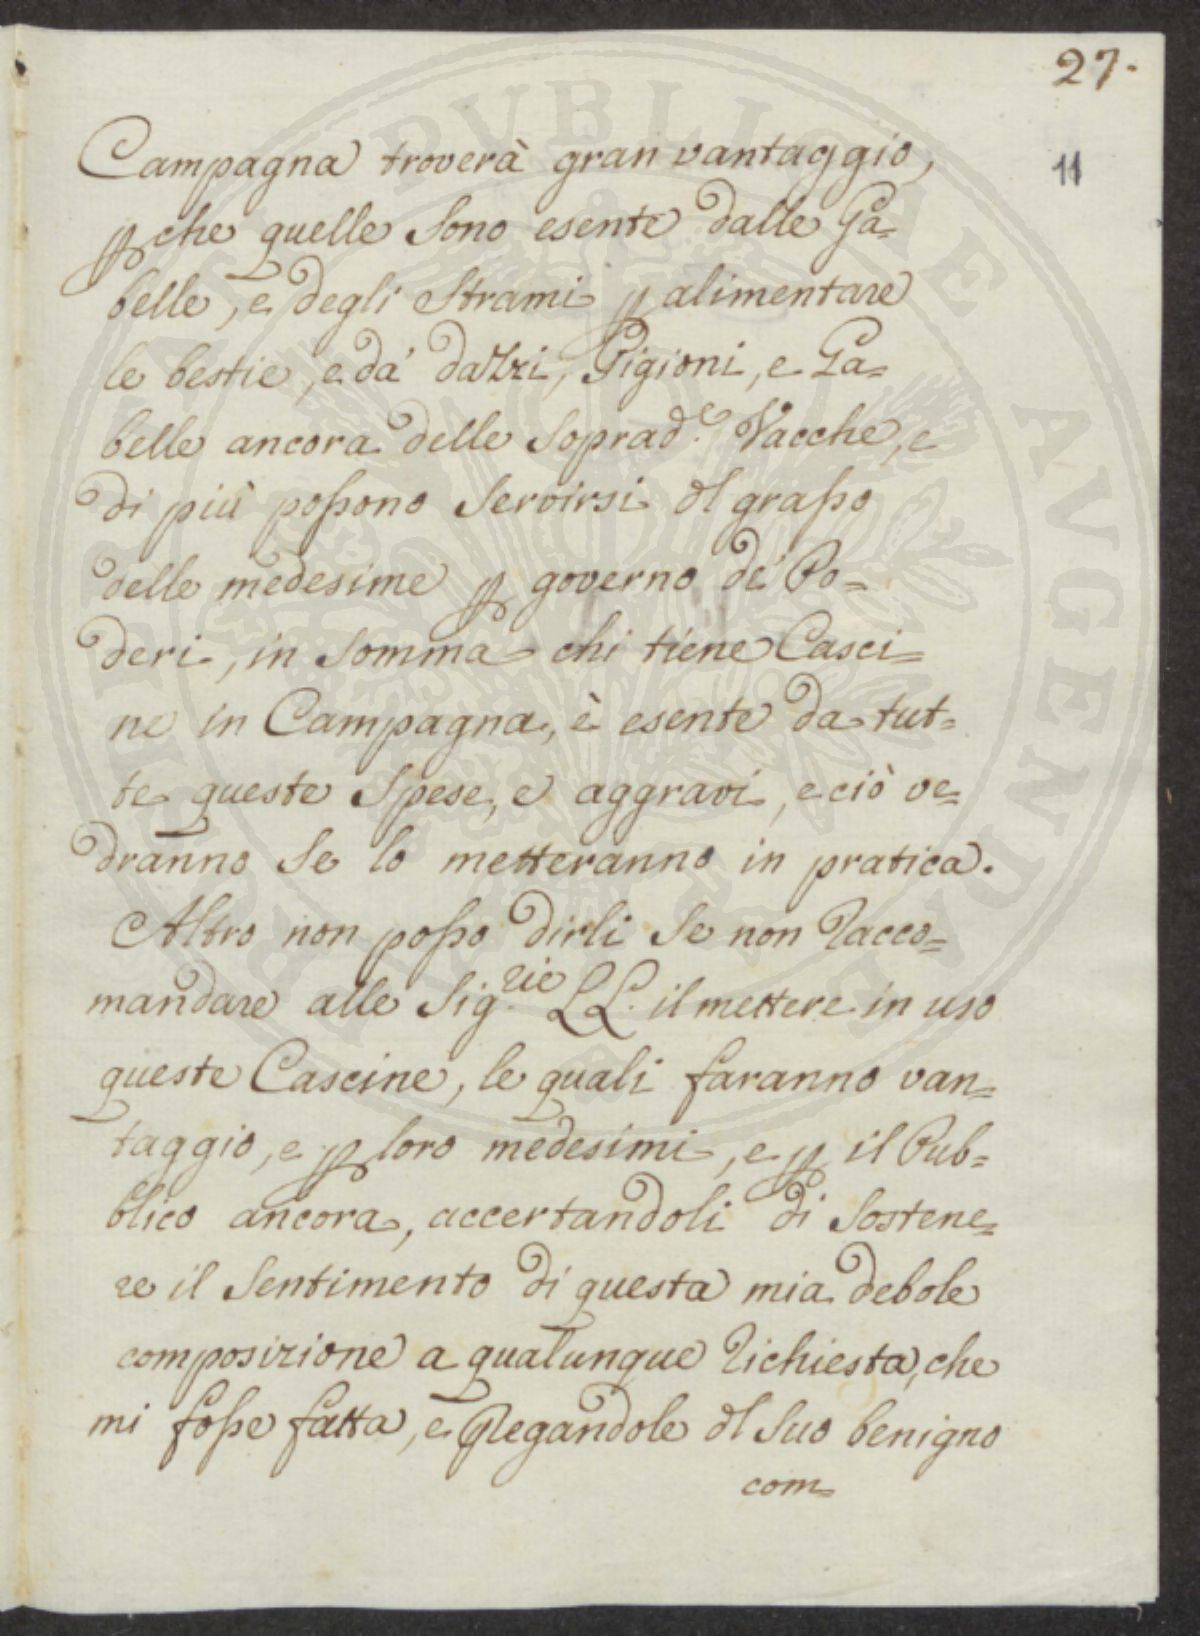 27.
11
Campagna troverà gran vantaggio,
ꝑche quelle sono esente dalle Ga=
belle, e degli Strami ꝑ alimentare
le bestie, e da' dazzi, Pigioni, e Ga=
belle ancora delle soprad.e Vacche, e
di più possono servirsi dl grasso
delle medesime ꝑ governo de' Po=
deri, in somma chi tiene Casci=
ne in Campagna, è esente da tut=
te queste spese, e aggravi, e ciò ve=
dranno se lo metteranno in pratica.
Altro non posso dirli se non racco=
mandare alle Sig.rie LL. il mettere in uso
queste Cascine, le quali faranno van=
taggio, e ꝑ loro medesimi, e ꝑ il Pub=
blico ancora, accertandoli di sostene=
re il sentimento di questa mia debole
composizione a qualunque richiesta, che
mi fosse fatta, e pregandole dl suo benigno
com=
PUBLICAE AUGENDAE